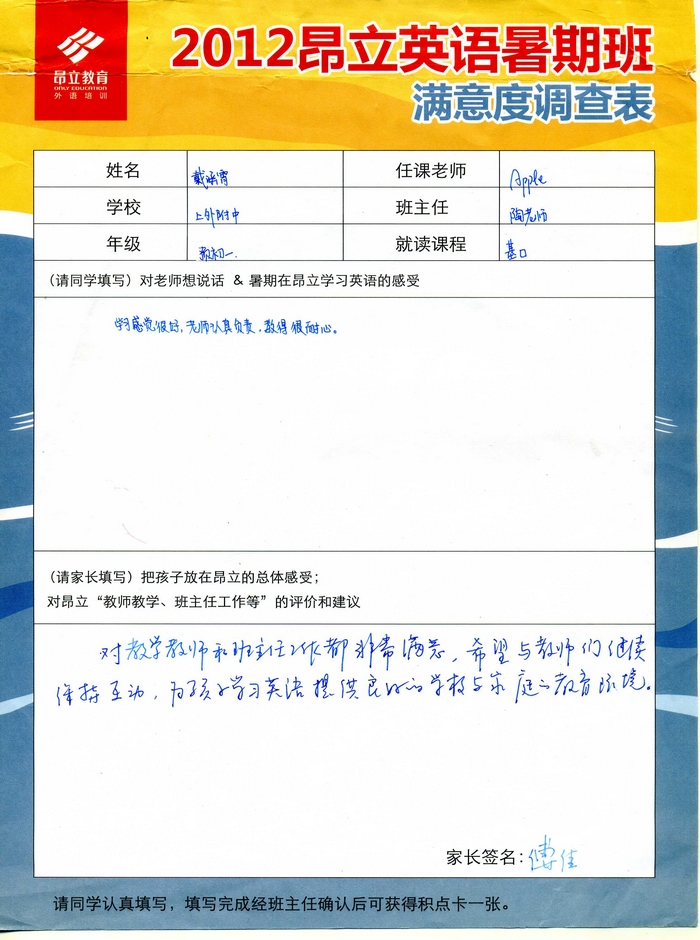 昂立教育
ONLY EDUCATION
外语培训
2012昂立英语暑期班
满意度调查表
姓名 戴涵霄 任课老师 Apple
学校 上外附中 班主任 陶老师
年级 初一. 就读课程 基口
(请同学填写)对老师想说话 & 暑期在昂立学习英语的感受
学习感觉很好,老师认真负责,教得很耐心。
(请家长填写)把孩子放在昂立的总体感受;
对昂立“教师教学、班主任工作等”的评价和建议
对教学教师和班主任工作都非常满意,希望与教师们继续
保持互动,为孩子学习英语提供良好的学校与家庭的教育环境。
家长签名:傅佳
请同学认真填写,填写完成经班主任确认后可获得积点卡一张。